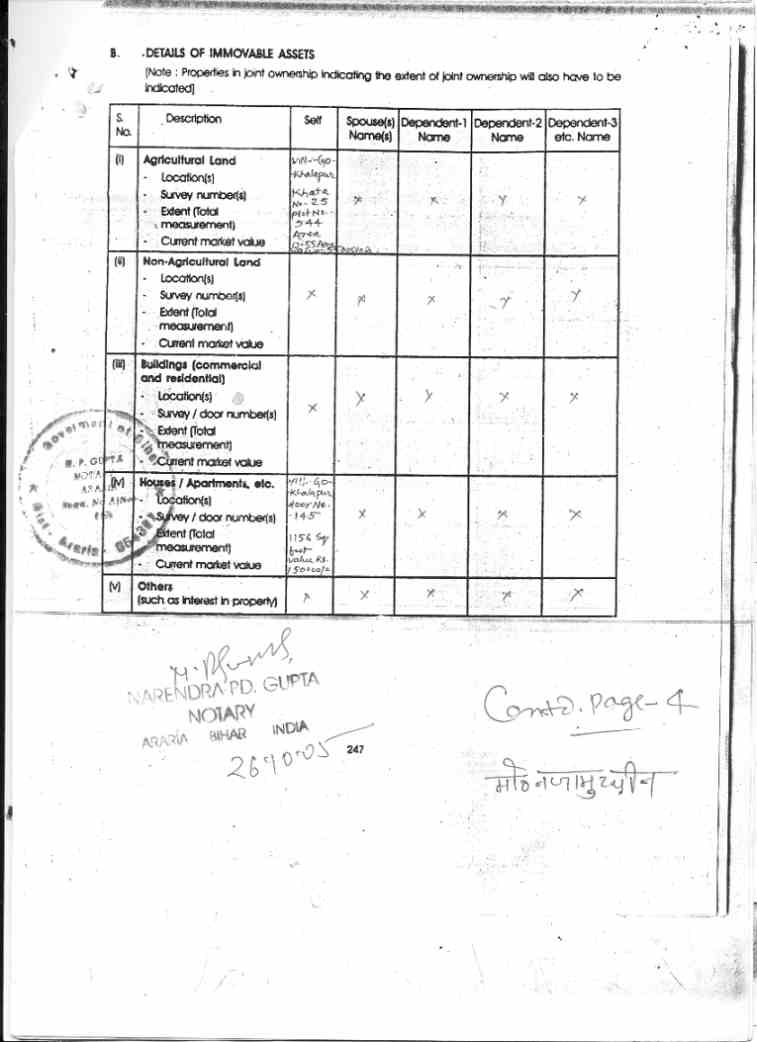 B. DETAILS OF IMMOVABLE ASSETS
[Note : Properties in joint ownership indicating the extent of joint ownership will also have to be
indicated]
S. No. Description Self Spouse(s) Name(s) Dependent-1 Name Dependent-2 Name Dependent-3 etc. Name
(i) Agricultural Land
- Location(s)
- Survey number(s)
- Extent (Total
measurement)
- Current market value
Vill.-Go-
Khalapur
Khata
No-25
plot No.-
544
Area
x x x x
(ii) Non-Agricultural Land
- Location(s)
- Survey number(s)
- Extent (Total
measurement)
- Current market value
x x x x x
(iii) Buildings (commercial
and residential)
- Location(s)
- Survey / door number(s)
- Extent (Total
measurement)
- Current market value
x x x x x
(iv) Houses / Apartments, etc.
- Location(s)
- Survey / door number(s)
- Extent (Total
measurement)
- Current market value
Vill.-Go-
Khalapur
door No.
-145
1156 Sq
feet
value Rs.
150000/=
x x x x
(v) Others
(such as interest in property)
x x x x x
Government of Bihar
N. P. GUPTA
NOTARY
Dist. Araria
NARENDRA PD. GUPTA
NOTARY
ARARIA BIHAR INDIA
247
Contd. page-4